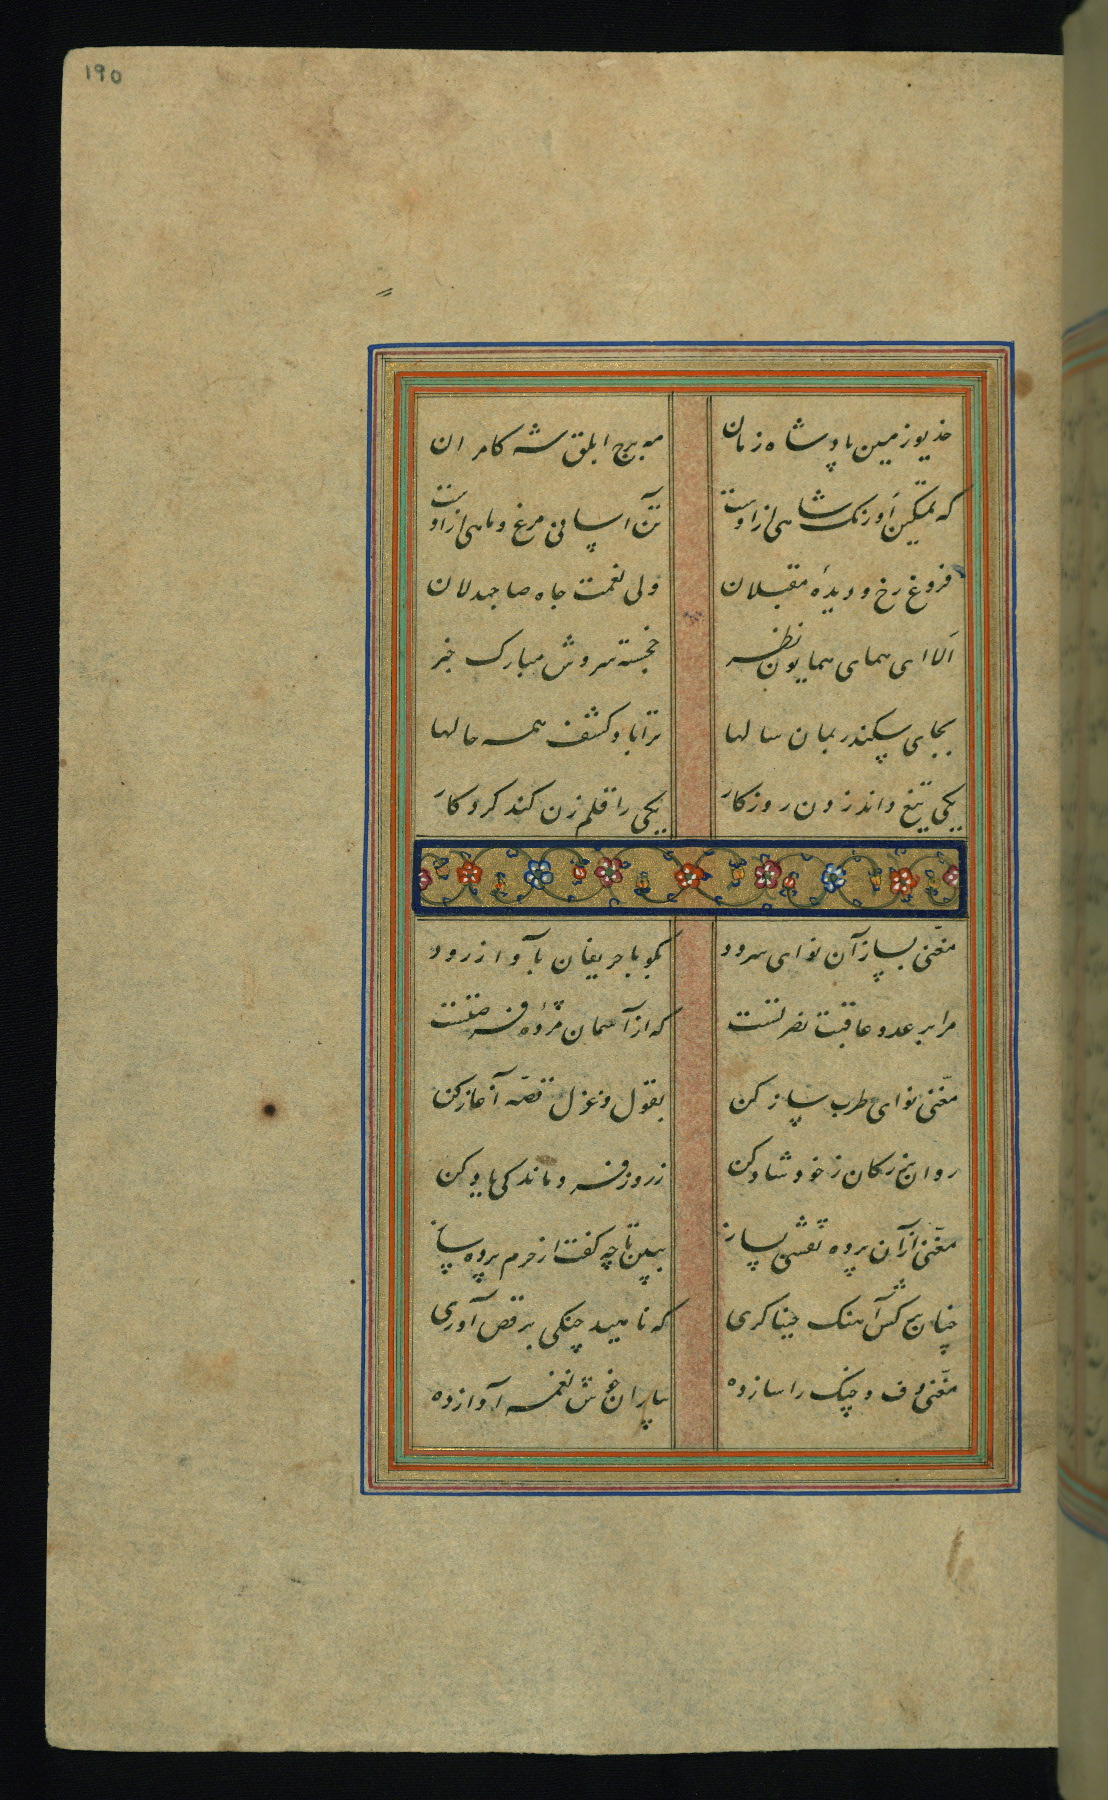 ۱۹۰
خدیو زمین پادشاه زمان
مه برج ابلق شه کامران
که تمکین اورنک شاهی ازاوست
تن آسانی مرغ و ماهی ازاوست
فروغ رخ و دیدهٔ مقبلان
ولی نعمت جاه صاحبدلان
الا ای همای همایون نظر
خجسته سروش مبارک خبر
بجای سکندر بمان سالها
ترا باد کشف همه حالها
یکی تیغ داند زدن روز کار
یکی را قلم زن کند کردکار
مغنی بساز آن نوای سرود
بکو با حریفان بآواز رود
مرا بر عدو عاقبت نصرتست
که از آسمان مژده فرصتست
مغنی نوای طرب ساز کن
بقول و غزل قصه آغاز کن
روان بزرکان ز خود شاد کن
ز روز فرو ماندکی یاد کن
مغنی از آن پرده نقشی بساز
ببین تا چه کفت از حرم پرده ساز
چنان برکش آهنک خیناکری
که ناهید چنکی برقص آوری
مغنی دف و چنک را ساز ده
بیاران خوش نغمه آواز ده